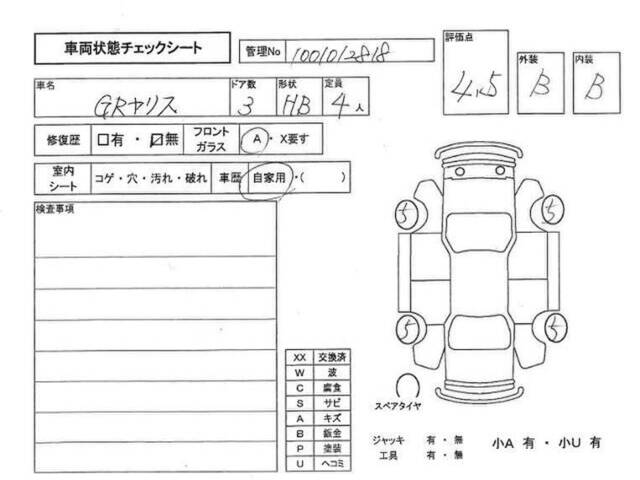 車両状態チェックシート
管理No 1001012818
評価点 4.5
外装 B
内装 B
車名 GRヤリス
ドア数 3
形状 HB
定員 4人
修復歴 □有・☑無
フロントガラス A・X要す
室内シート コゲ・穴・汚れ・破れ
車歴 自家用・( )
検査事項
5 5
5 5
XX 交換済
W 波
C 腐食
S サビ
A キズ
B 鈑金
P 塗装
U ヘコミ
スペアタイヤ
ジャッキ 有・無
工具 有・無
小A 有・小U 有